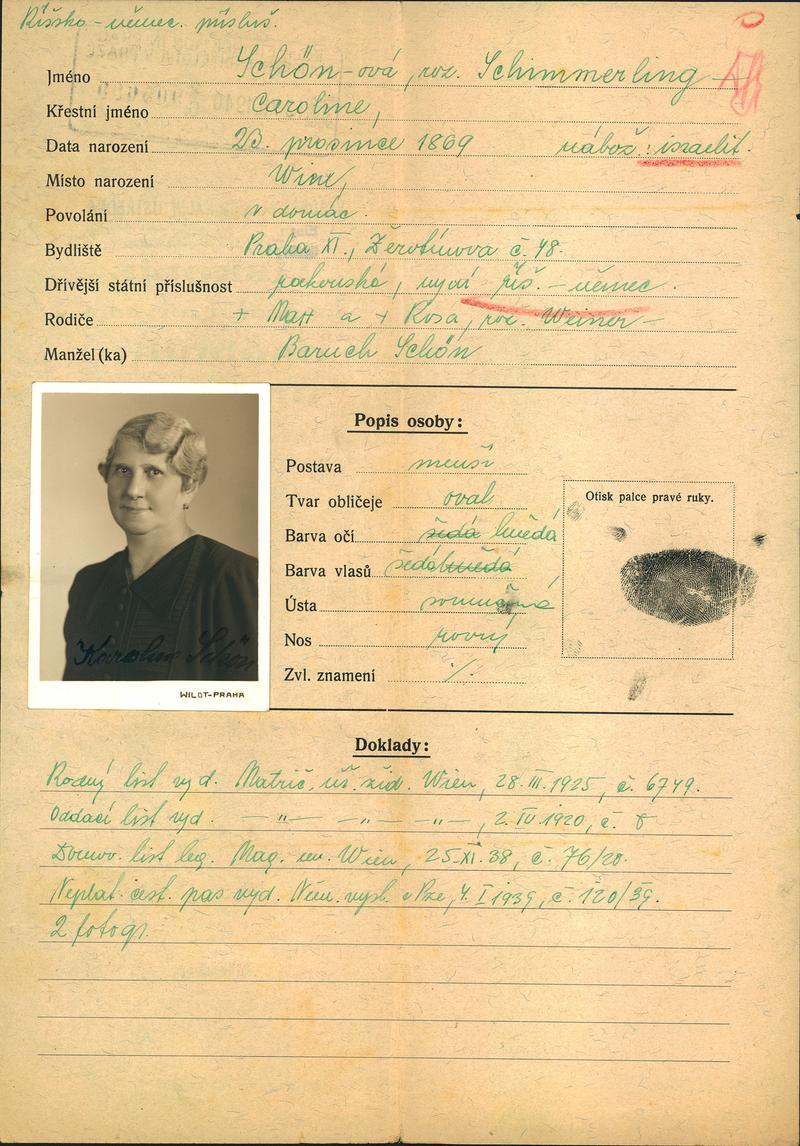 Říšsko-němec. přísluš.
Jméno Schön-ová, roz. Schimmerling
Křestní jméno Caroline,
Data narození 23. prosince 1869 nábož: israelit.
Místo narození Wien,
Povolání v domác.
Bydliště Praha XI., Žerotínova č. 48.
Dřívější státní příslušnost rakouská, nyní říš.-němec.
Rodiče + Max a + Rosa, roz. Weiner
Manžel(ka) Baruch Schön
Popis osoby:
Postava menší
Tvar obličeje oval
Otisk palce pravé ruky.
Barva očí šedá hnědá
Barva vlasů šedá hnědá
Ústa souměrná
Nos rovný
Zvl. znamení ·/·
Karoline Schön
WILDT-PRAHA
Doklady:
Rodný list vyd. Matrič. úř. žid. Wien, 28. III. 1925, č. 6749.
Oddací list vyd. —"— —"— —"—, 2. IV. 1920, č. 8
Domov. list leg. Mag. m. Wien, 25. XI. 38, č. 76/20.
Neplat. cest. pas vyd. Něm. vysl. v Pze, 4. I 1939, č. 120/39.
2 fotogr.